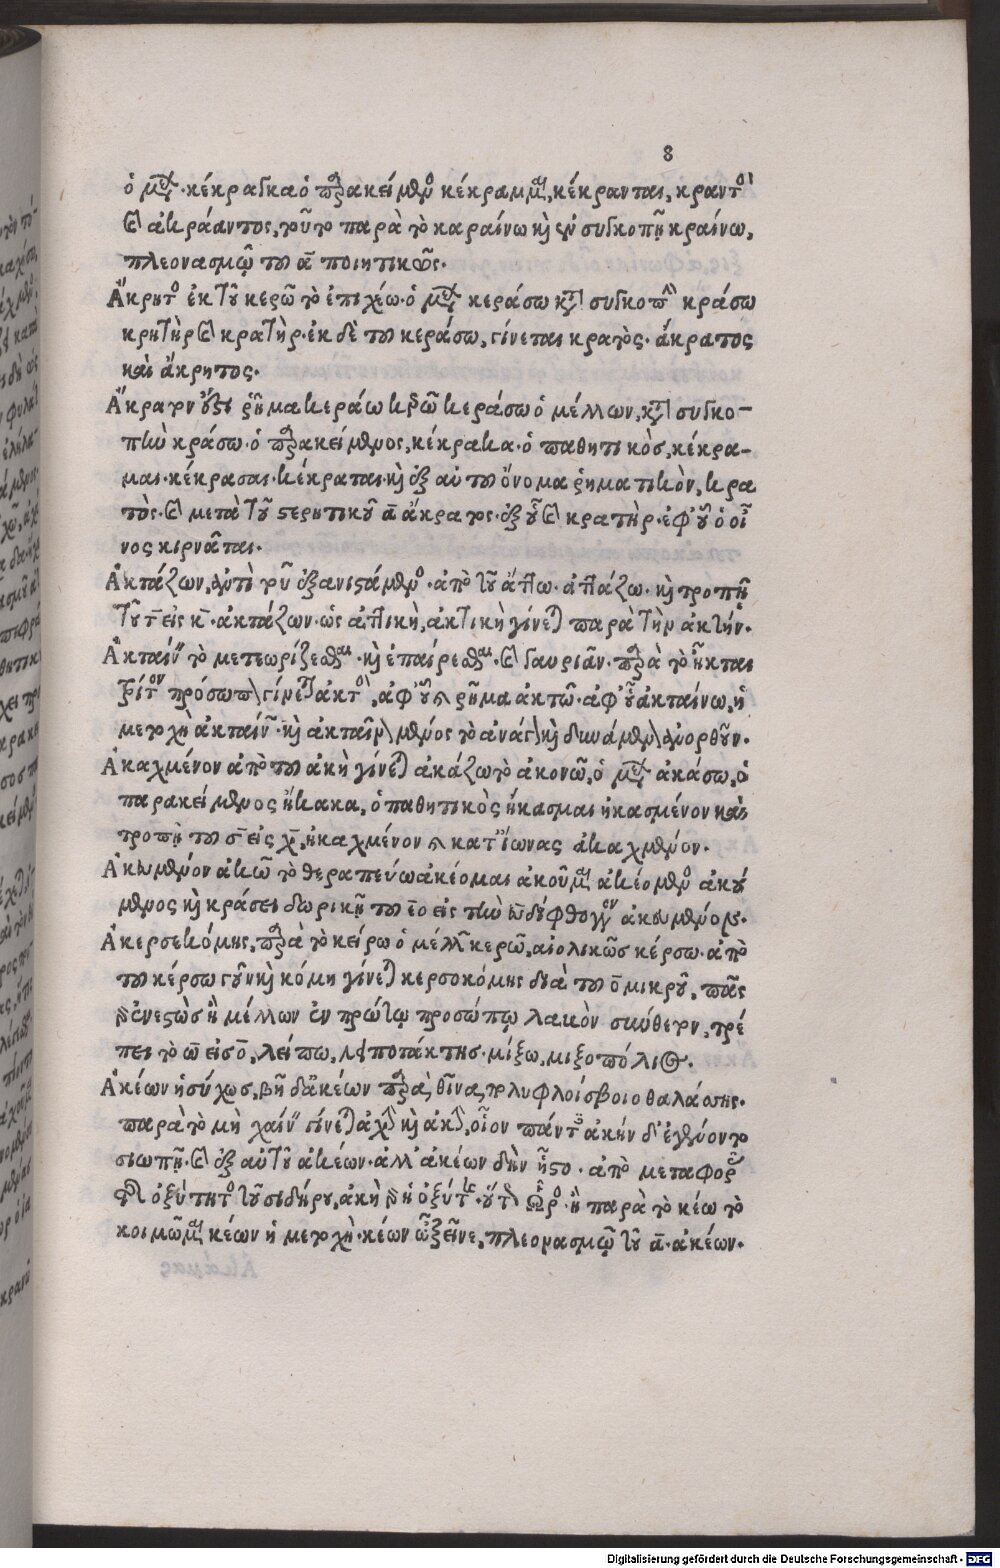 8
ὁ μέλλων. κέκραγκα ὁ παρακείμενος κέκραμμαι, κέκρανται, κραντὸς
καὶ ἀκράαντος, τοῦτο παρὰ τὸ καραίνω καὶ ἐν συγκοπῇ κραίνω,
πλεονασμῷ τοῦ α̅ ποιητικῶς.
Ἄκρητος ἐκ τοῦ κερῶ τὸ ἐπιχέω. ὁ μέλλων κεράσω κατὰ συγκοπὴν κράσω
κρητὴρ καὶ κρατὴρ. ἐκ δὲ τοῦ κεράσω, γίνεται κρατὸς. ἄκρατος
καὶ ἄκρητος.
ῥῆμα κεράω κερῶ κεράσω ὁ μέλλων, κατὰ συγκο-
πὴν κράσω. ὁ παρακείμενος, κέκρακα. ὁ παθητικὸς, κέκρα-
μαι. κέκρασαι. κέκραται. καὶ ἐξ αὐτοῦ ὄνομα ῥηματικὸν, κρα
τὸς. καὶ μετὰ τοῦ στερητικοῦ α̅ ἄκρατος. ἐξ οὗ καὶ κρατὴρ. ἐφ' οὗ ὁ οἶ
νος κιρνᾶται.
Ἀκτάζων, ἀντὶ τοῦ ἐξανιστάμενος. ἀπὸ τοῦ ἄττω. ἀττάζω. καὶ τροπῇ
τοῦ τ̅ εἰς κ̅. ἀκτάζων. ὡς ἀττικὴ, ἀκτικὴ γίνεται παρὰ τὴν ἀκτήν.
Ἀκταίνειν τὸ μετεωρίζεσθαι. καὶ ἐπαίρεσθαι. καὶ γαυριᾶν. παρὰ τὸ ἦκται
τρίτον πρόσωπον γίνεται ἀκτὸς, ἀφ' οὗ ῥῆμα ἀκτῶ. ἀφ' οὗ ἀκταίνω, ἡ
μετοχὴ ἀκταίνων. καὶ
Ἀκαχμένον ἀπὸ τοῦ ἀκὴ γίνεται ἀκάζω τὸ ἀκονῶ, ὁ μέλλων ἀκάσω, ὁ
παρακείμενος ἤκακα, ὁ παθητικὸς ἤκασμαι ἠκασμένον καὶ
τροπῇ τοῦ σ̅ εἰς χ̅, ἠκαχμένον καὶ κατ' ἴωνας ἀκαχμένον.
Ἀκουμένον ἀκῶ τὸ θεραπεύω ἀκέομαι ἀκοῦμαι ἀκεόμενος ἀκού
μενος καὶ κράσει δωρικῇ τοῦ ε̅ο εἰς τὴν ου̅ δίφθογγον
Ἀκερσεκόμης, παρὰ τὸ κείρω ὁ μέλλων κερῶ, αἰολικῶς κέρσω. ἀπὸ
τοῦ κέρσω γοῦν καὶ κόμη γίνεται κερσοκόμης διὰ τοῦ ο̅ μικροῦ, πᾶς
ἐνεστὼς ἢ μέλλων ἐν πρώτῳ προσώπῳ λακὸν σύνθετον, τρέ
πει τὸ ω̅ εἰς ο̅, λείπω, λιποτάκτης. μίξω, μιξοπόλιος.
Ἀκέων ἡσύχως, βῆ δ' ἀκέων παρὰ θῖνα, πολυφλοίσβοιο θαλάσσης.
παρὰ τὸ μὴ χαίνειν γίνεται ἀχὴν καὶ ἀκὴν, οἷον πάντες ἀκὴν δ' ἐγένοντο
σιωπῇ. καὶ ἐξ αὐτοῦ ἀκέων. ἀλλ' ἀκέων δὴν ἧστο. ἀπὸ μεταφορᾶς
τῆς ὀξύτητος τοῦ σιδήρου, ἀκὴ γὰρ ἡ ὀξύτης. οὕτως Ὦρος. ἢ παρὰ τὸ κέω τὸ
κοιμῶμαι κέων ἡ μετοχὴ. κέων πλεονασμῷ τοῦ α̅. ἀκέων.